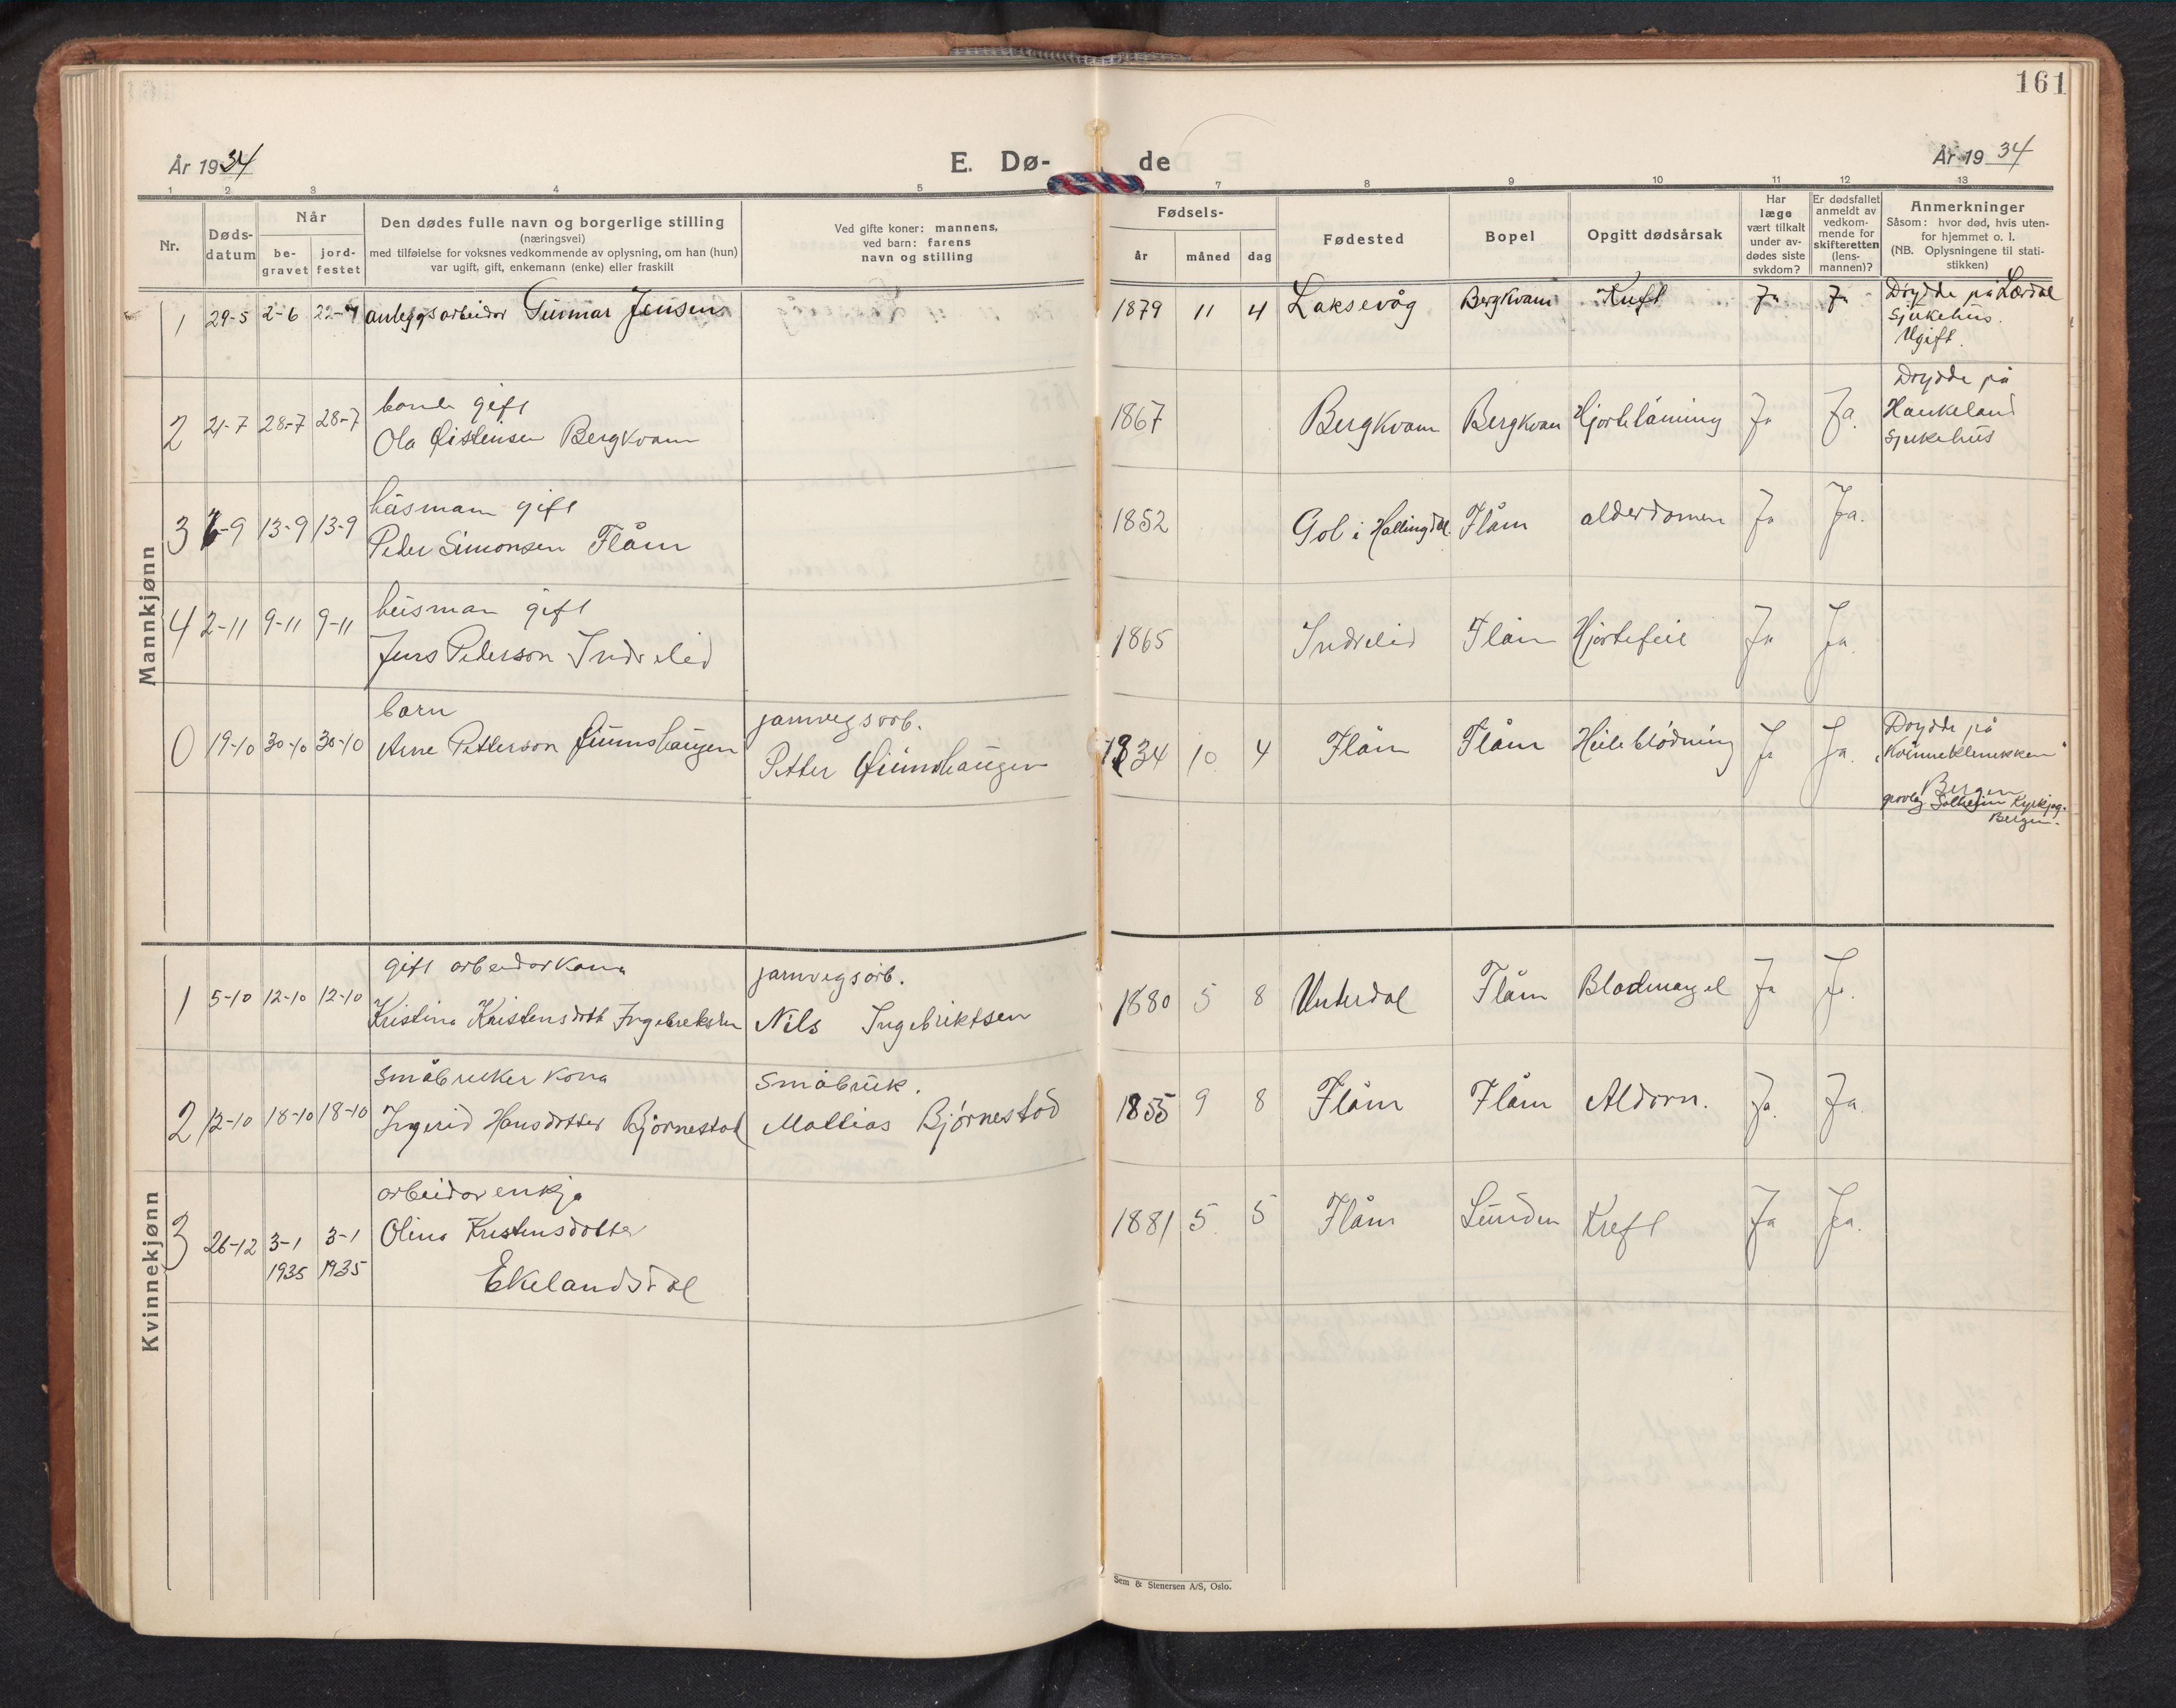 161
År 1934
E. Dø-
de
År 1934
1 2 3 4 5 7 8 9 10 11 12 13
Nr.
Døds-
datum
Når
be-
gravet
jord-
festet
Den dødes fulle navn og borgerlige stilling
(næringsvei)
med tilføielse for voksnes vedkommende av oplysning, om han (hun)
var ugift, gift, enkemann (enke) eller fraskilt
Ved gifte koner: mannens,
ved barn: farens
navn og stilling
Fødsels-
år måned dag
Fødested
Bopel
Opgitt dødsårsak
Har
læge
vært tilkalt
under av-
dødes siste
sykdom?
Er dødsfallet
anmeldt av
vedkom-
mende for
skifteretten
(lens-
mannen)?
Anmerkninger
Såsom: hvor død, hvis uten-
for hjemmet o. l.
(NB. Oplysningene til stati-
stikken)
Mannkjønn
1 29-5 2-6 22-7 anleggsarbeidar Gunnar Jensen 1879 11 4 Laksevåg Bergkvam Kreft Ja Ja Døydde på Lærdal
Sjukehus.
Ugift.
bonde gift
2 21-7 28-7 28-7 Ola Øistensen Bergkvam 1867 Bergkvam Bergkvam Hjortelåming Ja Ja. Døydde på
Haukeland
Sjukehus
husmann gift
3 6-9 13-9 13-9 Peder Simonsen Flåm 1852 Gol i Hallingdal Flåm alderdomen Ja Ja.
husman gift
4 2-11 9-11 9-11 Jens Pederson Indrelid 1865 Indrelid Flåm Hjortefeil Ja Ja.
barn jarnvegsarb.
0 19-10 30-10 30-10 Arne Petterson Grunnshaugen Petter Grunnshaugen 1934 10 4 Flåm Flåm Heileblødning Ja Ja. Døydde på
"Kvinneklinikken"
Bergen
gravlg Solheim Kyrkjeg.
Bergen.
Kvinnekjønn
gift arbeidarkona jarnvegsarb.
1 5-10 12-10 12-10 Kristina Kristensdott Ingebrektsen Nils Ingebriktsen 1880 5 8 Underdal Flåm Blodmangel Ja Ja.
Småbruker kona Småbruk.
2 12-10 18-10 18-10 Ingerid Hansdotter Bjørnestad Mattias Bjørnestad 1855 9 8 Flåm Flåm Aldorn. Ja. Ja.
arbeidarenkja
3 26-12 3-1 1935 3-1 1935 Olina Kristensdotter
Ekelandsdal 1881 5 5 Flåm Lunden Kreft Ja Ja.
Sem & Stenersen A/S, Oslo.